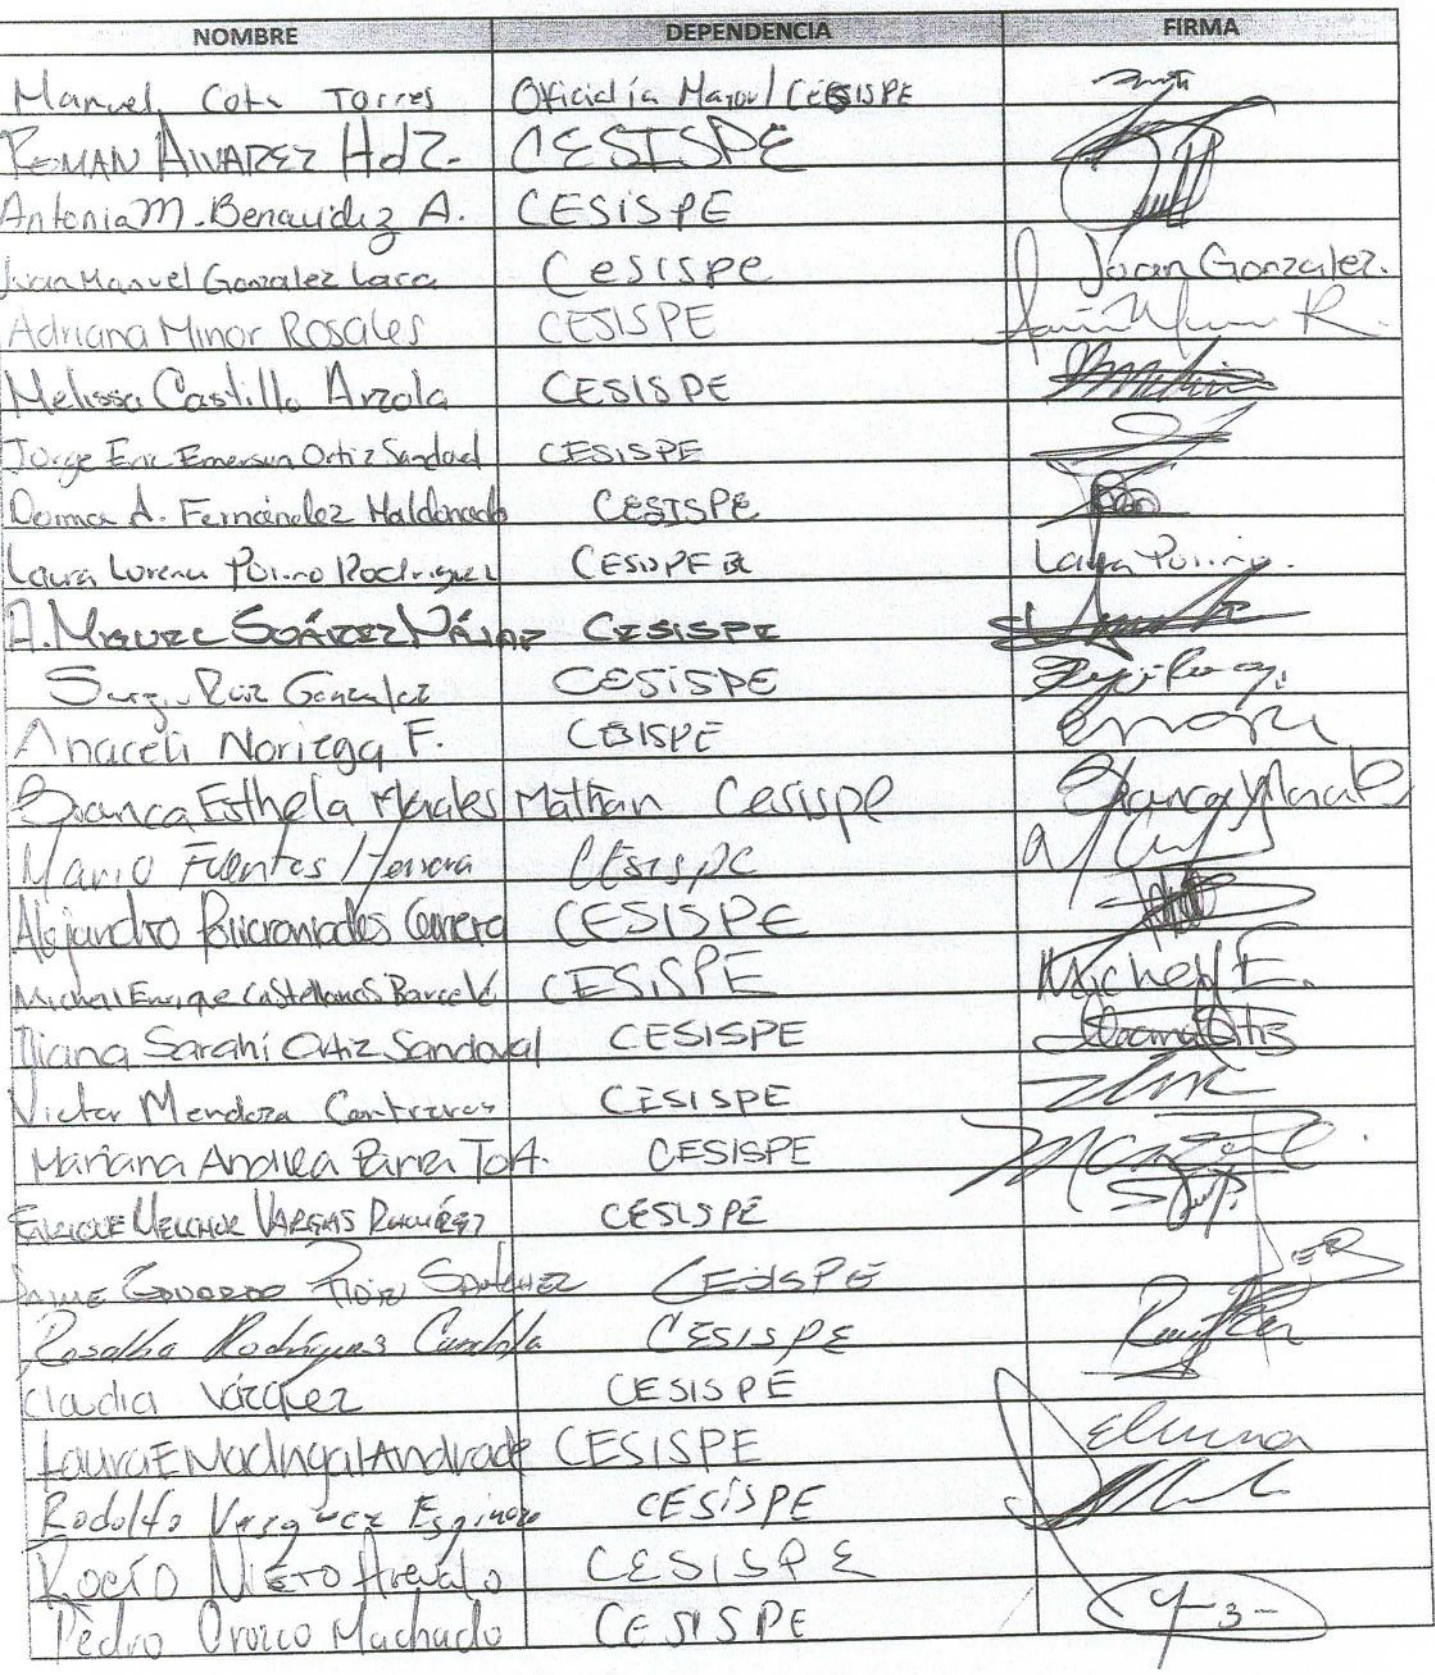 NOMBRE DEPENDENCIA FIRMA
Manuel Cota Torres Oficialía Mayor/CESISPE
ROMAN ALVAREZ HdZ. CESISPE
Antonia M. Benavidez A. CESISPE
Juan Manuel Gonzalez Lara Cesispe Juan Gonzalez.
Adriana Minor Rosales CESISPE
Melissa Castillo Arzola CESISPE
Jorge Eric Emerson Ortiz Sandoval CESISPE
A. Fernández Maldonado CESISPE
Laura Lorena Rodriguez CESISPE Laura
A. MIGUEL SUÁREZ CESISPE
Ruiz Gonzalez CESISPE
Anaceli Noriega F. CESISPE
Bianca Esthela Morales Cesispe
Mario Fuentes Herrera CESISPE
Alejandro CESISPE
Michell Enrique Castellanos Barceló CESISPE Michell E.
Iliana Sarahí Ortiz Sandoval CESISPE
Victor Mendoza Contreras CESISPE
Mariana Andrea Parra CESISPE
ENRIQUE MELCHOR VARGAS RAMÍREZ CESISPE
EDUARDO SANCHEZ CESISPE
Rosalba Rodríguez CESISPE
Claudia Vázquez CESISPE
Laura E Madrigal Andrade CESISPE
Rodolfo Vasquez Espinoza CESISPE
Rocío NIETO Arevalo CESISPE
Pedro Orozco Machado CESISPE